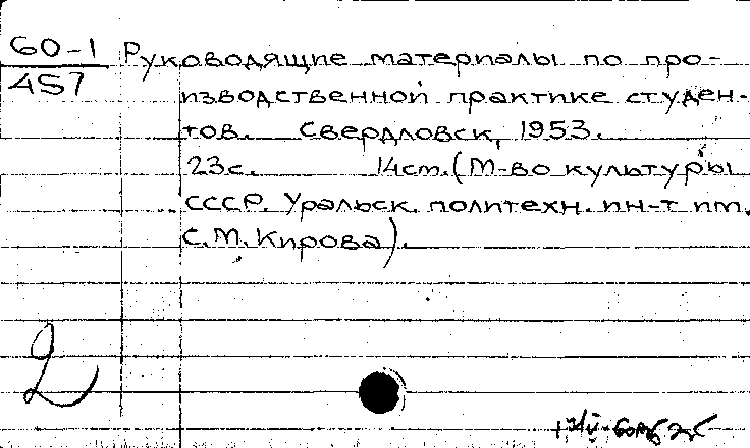 60-1 Руководящие материалы по про-
457
изводственной практике студен-
тов. Свердловск, 1953.
23с. 14см. (М-во культуры
СССР. Уральск. политехн. ин-т им.
С.М. Кирова).
2